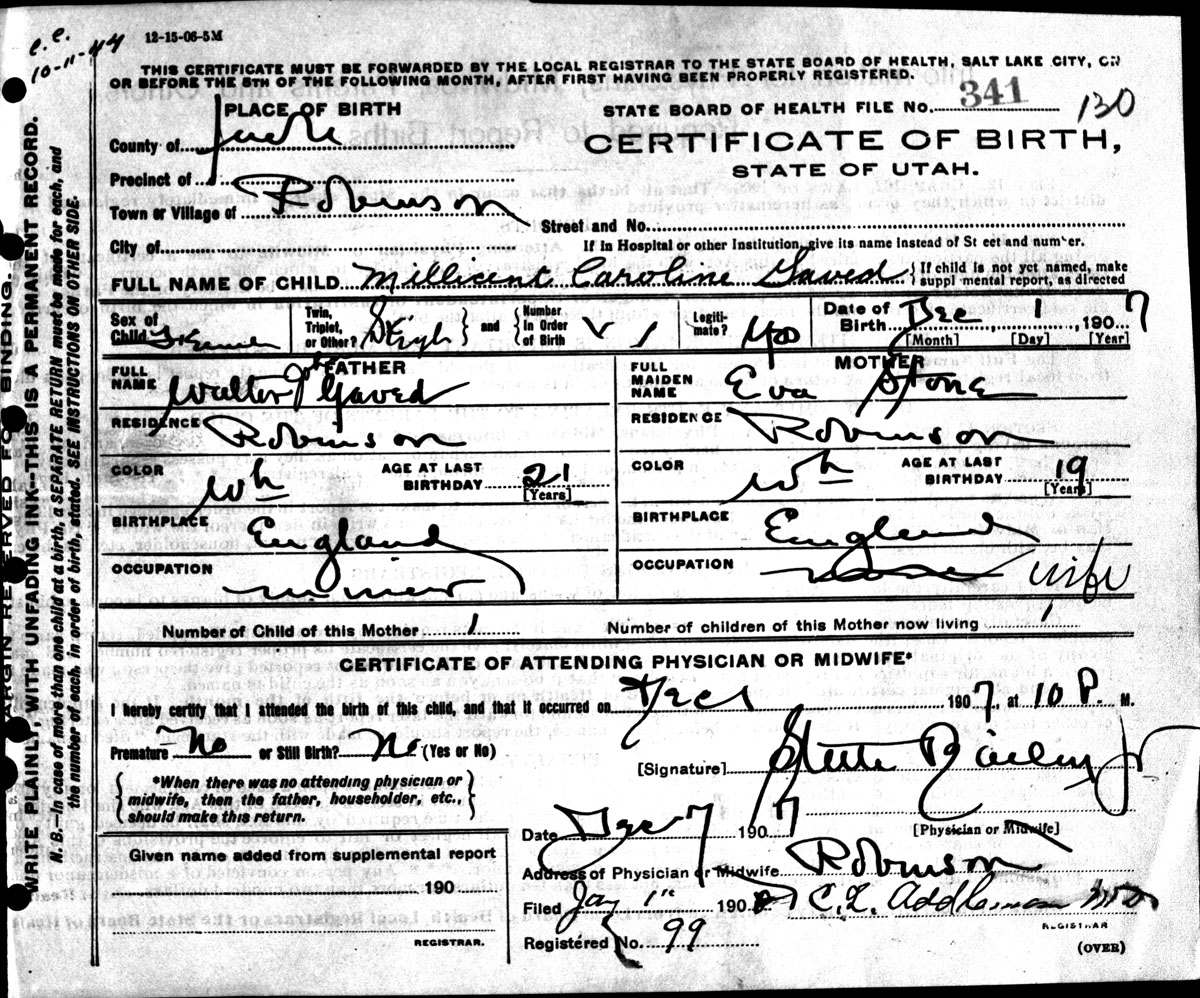 c.c.
10-11-44
12-15-06-5M
THIS CERTIFICATE MUST BE FORWARDED BY THE LOCAL REGISTRAR TO THE STATE BOARD OF HEALTH, SALT LAKE CITY, ON
OR BEFORE THE 5TH OF THE FOLLOWING MONTH, AFTER FIRST HAVING BEEN PROPERLY REGISTERED.
PLACE OF BIRTH
STATE BOARD OF HEALTH FILE NO. 341 130
County of
CERTIFICATE OF BIRTH,
STATE OF UTAH.
Precinct of
Town or Village of Robinson
Street and No.
City of
If in Hospital or other Institution, give its name instead of St eet and number.
FULL NAME OF CHILD Millicent Caroline Gaved
If child is not yet named, make
suppl mental report, as directed
Sex of Child
Twin, Triplet, or Other?
and
Number in Order of Birth 1
Legiti- mate? Yes
Date of Birth Dec 1, 1907
[Month] [Day] [Year]
FATHER
FULL NAME Walter John Gaved
RESIDENCE Robinson
COLOR Wh AGE AT LAST BIRTHDAY 21
[Years]
BIRTHPLACE England
OCCUPATION miner
MOTHER
FULL MAIDEN NAME Eva Stone
RESIDENCE Robinson
COLOR Wh AGE AT LAST BIRTHDAY 19
[Years]
BIRTHPLACE England
OCCUPATION wife
Number of Child of this Mother 1 Number of children of this Mother now living 1
CERTIFICATE OF ATTENDING PHYSICIAN OR MIDWIFE*
I hereby certify that I attended the birth of this child, and that it occurred on Dec 1 1907, at 10 P. M.
Premature No or Still Birth? No (Yes or No)
*When there was no attending physician or
midwife, then the father, householder, etc.,
should make this return.
[Signature] Steele Bailey Jr
[Physician or Midwife]
Date Dec 7 1907
Address of Physician or Midwife Robinson
Filed Jany 1" 1908 C. L. Addleman
REGISTRAR
Registered No. 99
(OVER)
Given name added from supplemental report
190
REGISTRAR.
MARGIN RESERVED FOR BINDING.
WRITE PLAINLY, WITH UNFADING INK--THIS IS A PERMANENT RECORD.
N. B.--In case of more than one child at a birth, a SEPARATE RETURN must be made for each, and
the number of each, in order of birth, stated. SEE INSTRUCTIONS ON OTHER SIDE.